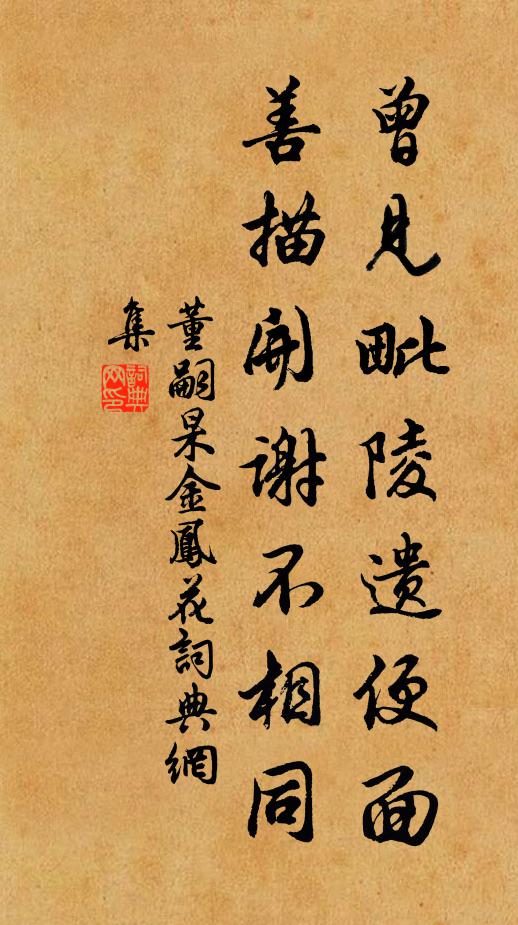 曾見毗陵遺便面
善描開謝不相同
董嗣杲金鳳花詞典網
集
詞典
网印